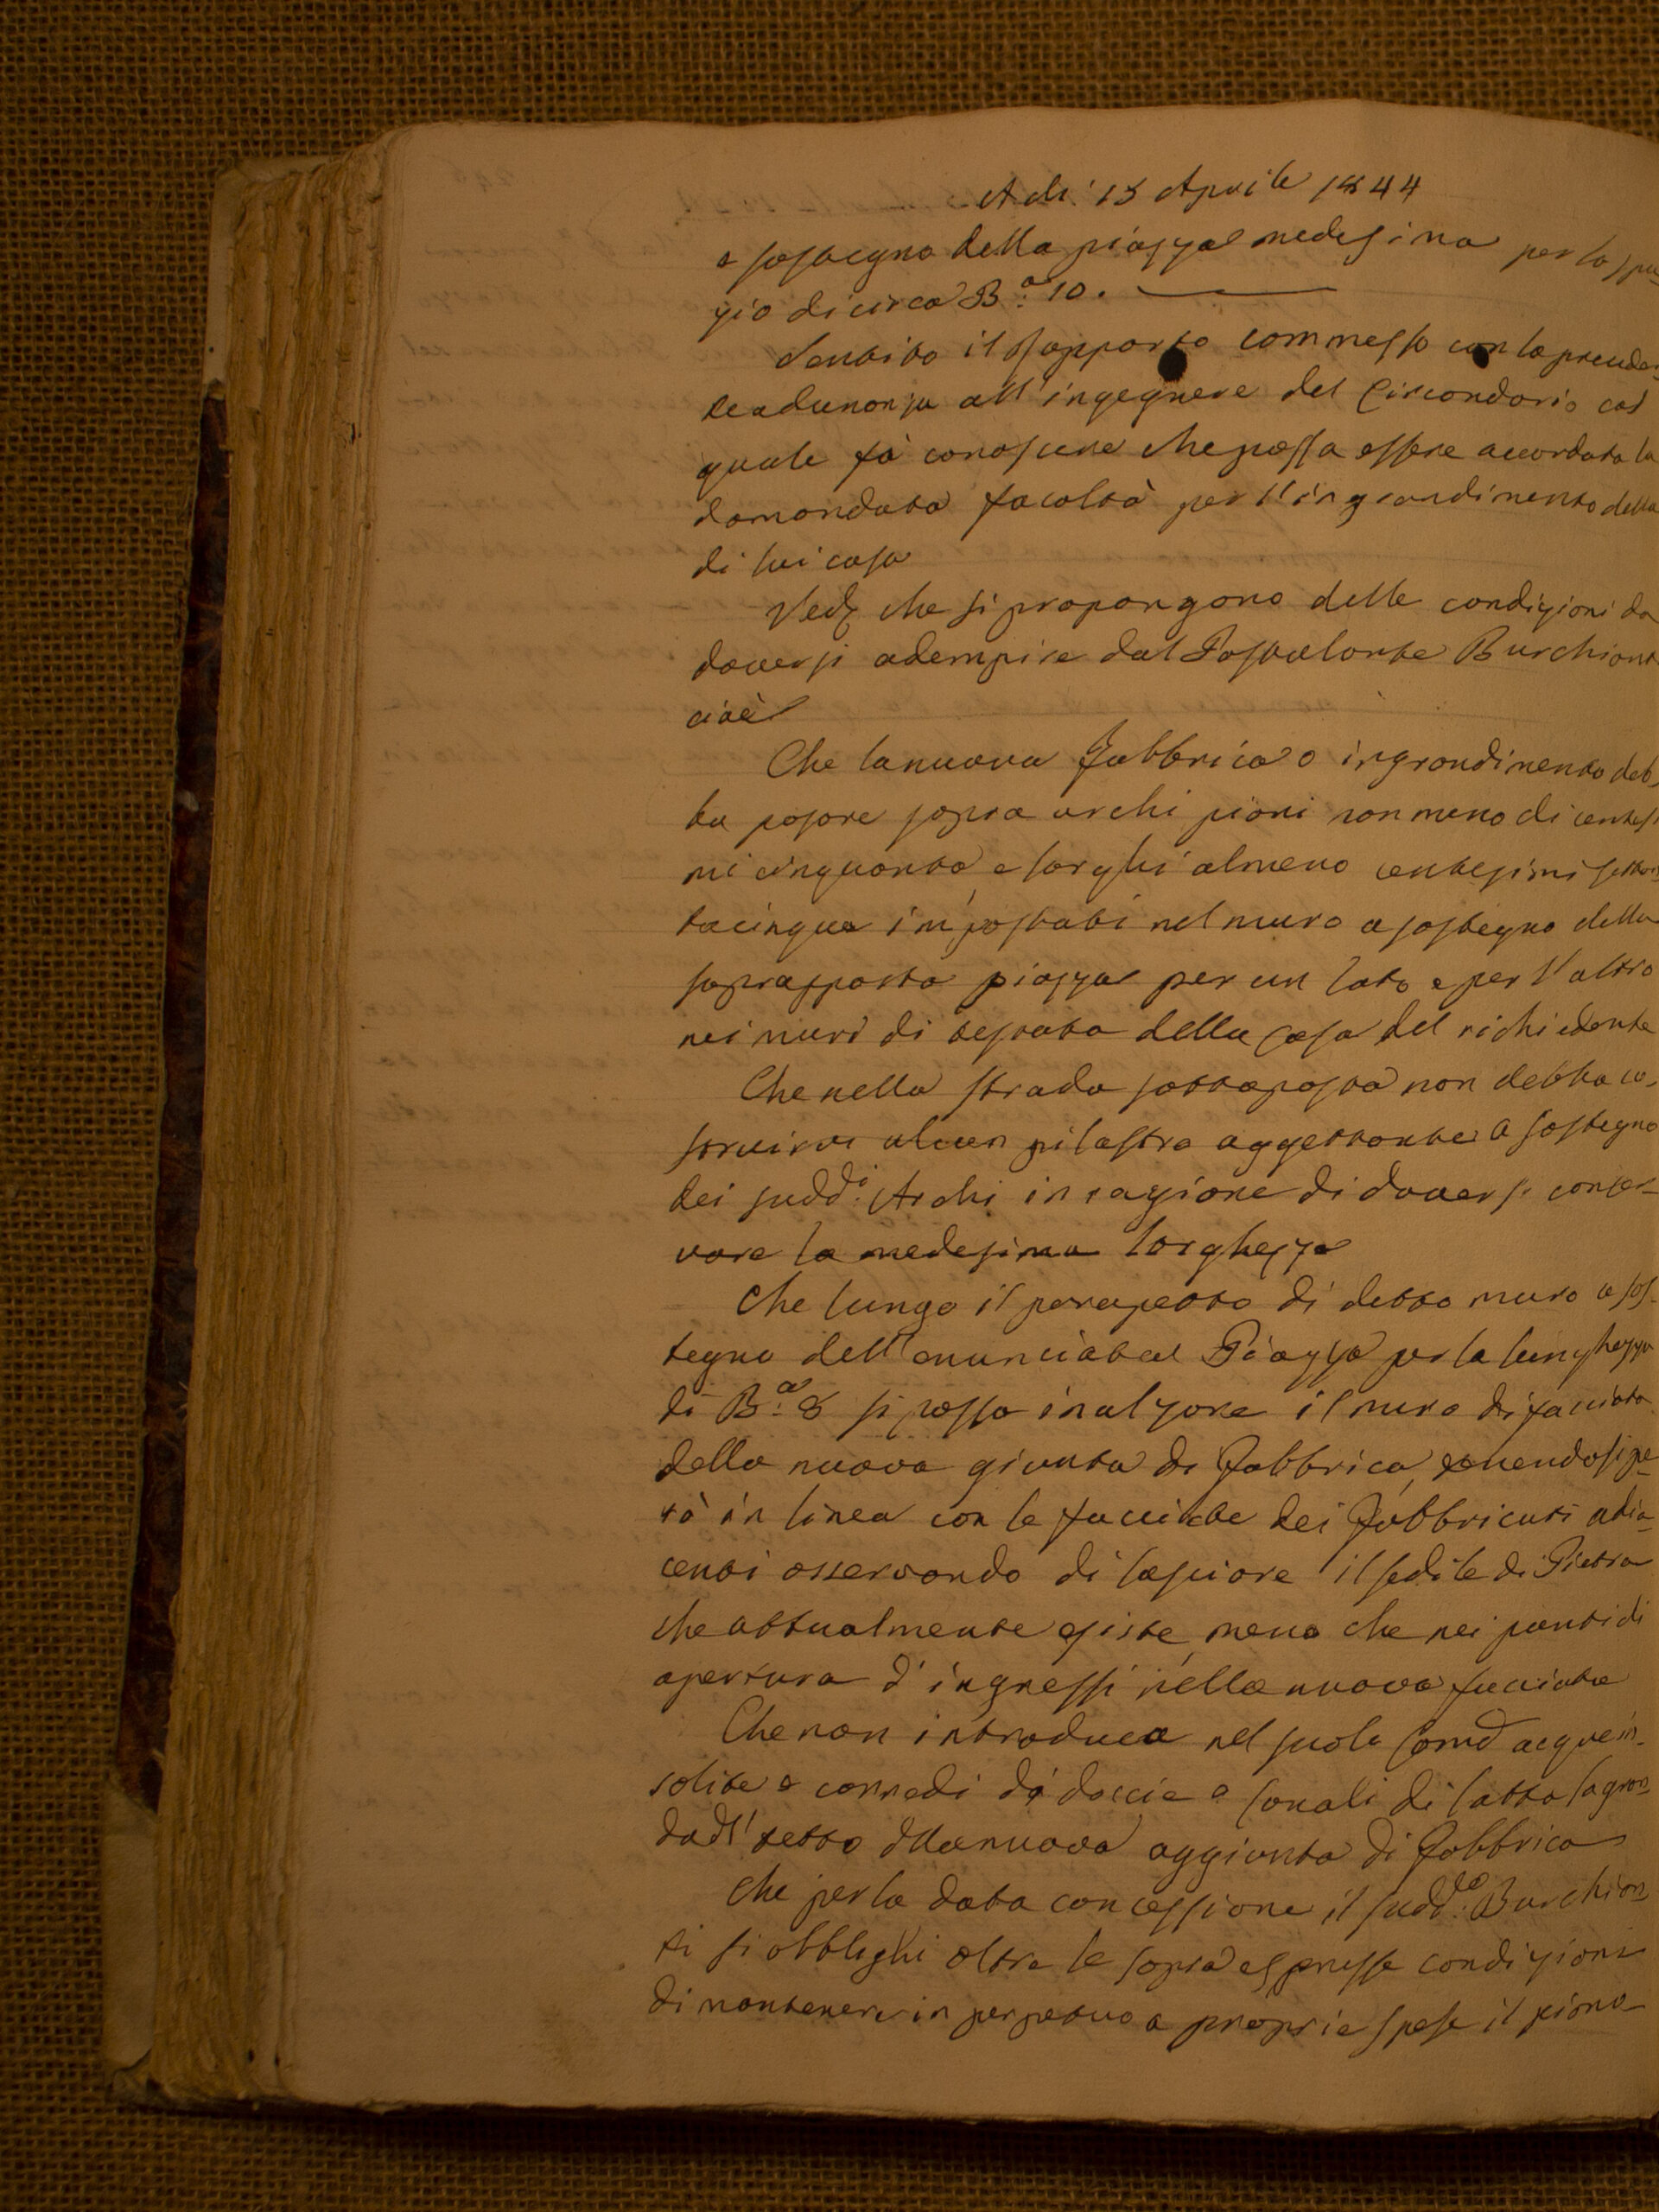 Adì 15 Aprile 1844
a sostegno della piazza medesima per lo spa-
zio di circa B.a 10.
Sentito il rapporto commesso con la preceden-
te adunanza all'ingegnere del Circondario col
quale fà conoscere che possa essere accordata la
domandata facoltà per l'ingrandimento della
di lui casa
Ved che si propongono delle condizioni da
doversi adempire dal Postulante Burchianti
cioè
Che la nuova fabbrica o ingrandimento deb-
ba posare sopra archi pieni non meno di centesi
mi cinquanta e larghi almeno centesimi settan-
tacinque impostati nel muro a sostegno della
soprapposta piazza per un lato e per l'altro
nei muri di testata della casa del richiedente
Che nella strada sottoposta non debba co-
struirvi alcun pilastro aggettante a sostegno
dei sudd.i Archi in ragione di doversi conser-
vare la medesima larghezza
Che lungo il parapetto di detto muro a sos-
tegno dell'enunciata Piazza per la lunghezza
di B.a 8 si possa inalzare il muro di facciata
della nuova giunta di fabbrica, tenendosi pe-
rò in linea con le facciate dei fabbricati adia-
centi osservando di lasciare il sedile di Pietra
che attualmente esiste, meno che nei punti di
apertura d'ingressi nella nuova facciata
Che non introduca nel suolo Comd acque in-
solite e corredi di doccie e canali di latta la gron-
da del tetto della nuova aggiunta di fabbrica
Che per la data concessione il sudd.to Burchian-
ti si obblighi oltre le sopra espresse condizioni
di mantenere in perpetuo a proprie spese il piano